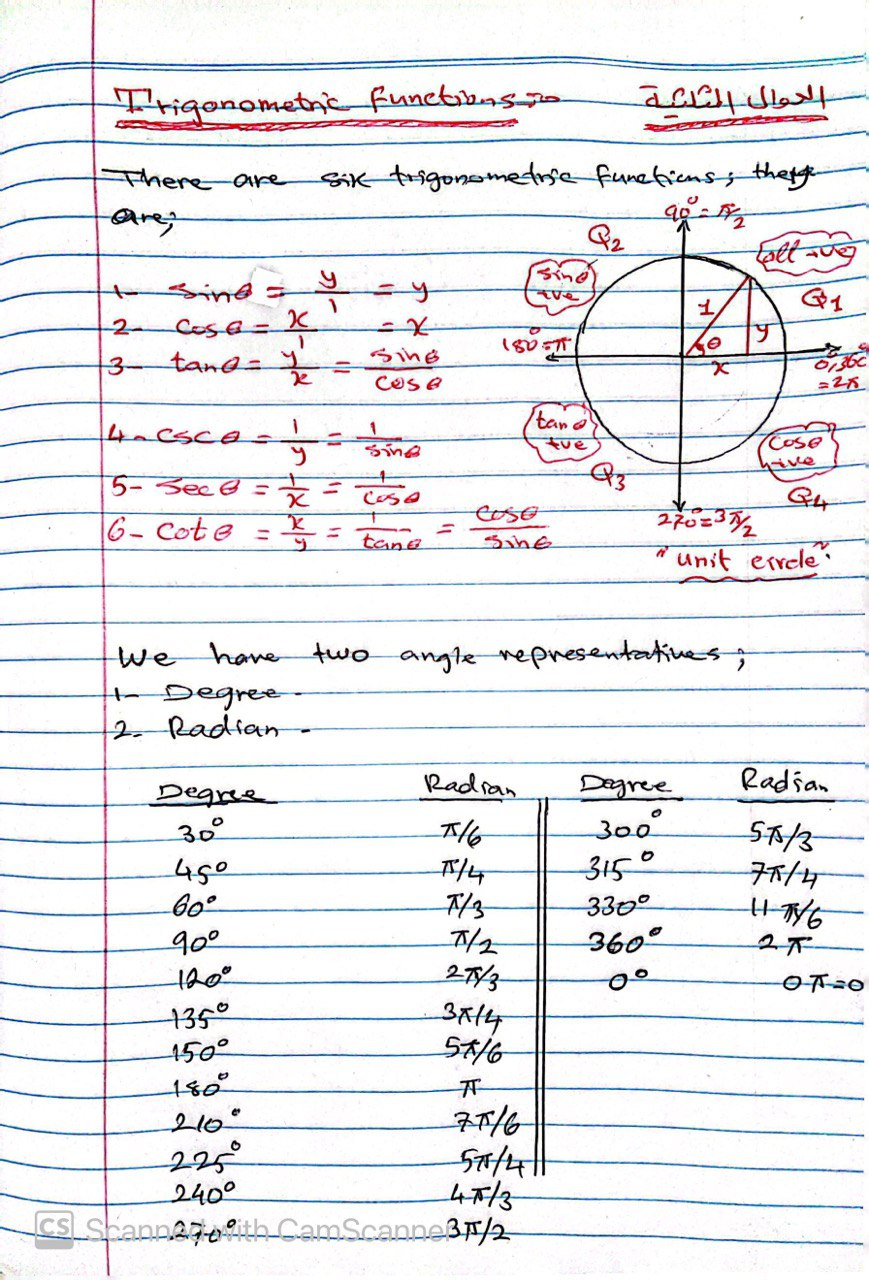 Trigonometric Functions :- الدوال المثلثية
There are six trigonometric functions; these
are;
1- sinθ = y/1 = y
2- cosθ = x/1 = x
3- tanθ = y/x = sinθ/cosθ
4- cscθ = 1/y = 1/sinθ
5- secθ = 1/x = 1/cosθ
6- cotθ = x/y = 1/tanθ = cosθ/sinθ
90° = π/2
Q2
all +ve
sinθ
+ve
Q1
1
y
θ
x
180° = π
0, 360
= 2π
tanθ
+ve
cosθ
+ve
Q3
Q4
270° = 3π/2
"unit circle"
We have two angle representatives;
1- Degree.
2- Radian.
Degree Radian Degree Radian
30° π/6 300° 5π/3
45° π/4 315° 7π/4
60° π/3 330° 11π/6
90° π/2 360° 2π
120° 2π/3 0° 0π=0
135° 3π/4
150° 5π/6
180° π
210° 7π/6
225° 5π/4
240° 4π/3
270° 3π/2
CS Scanned with CamScanner